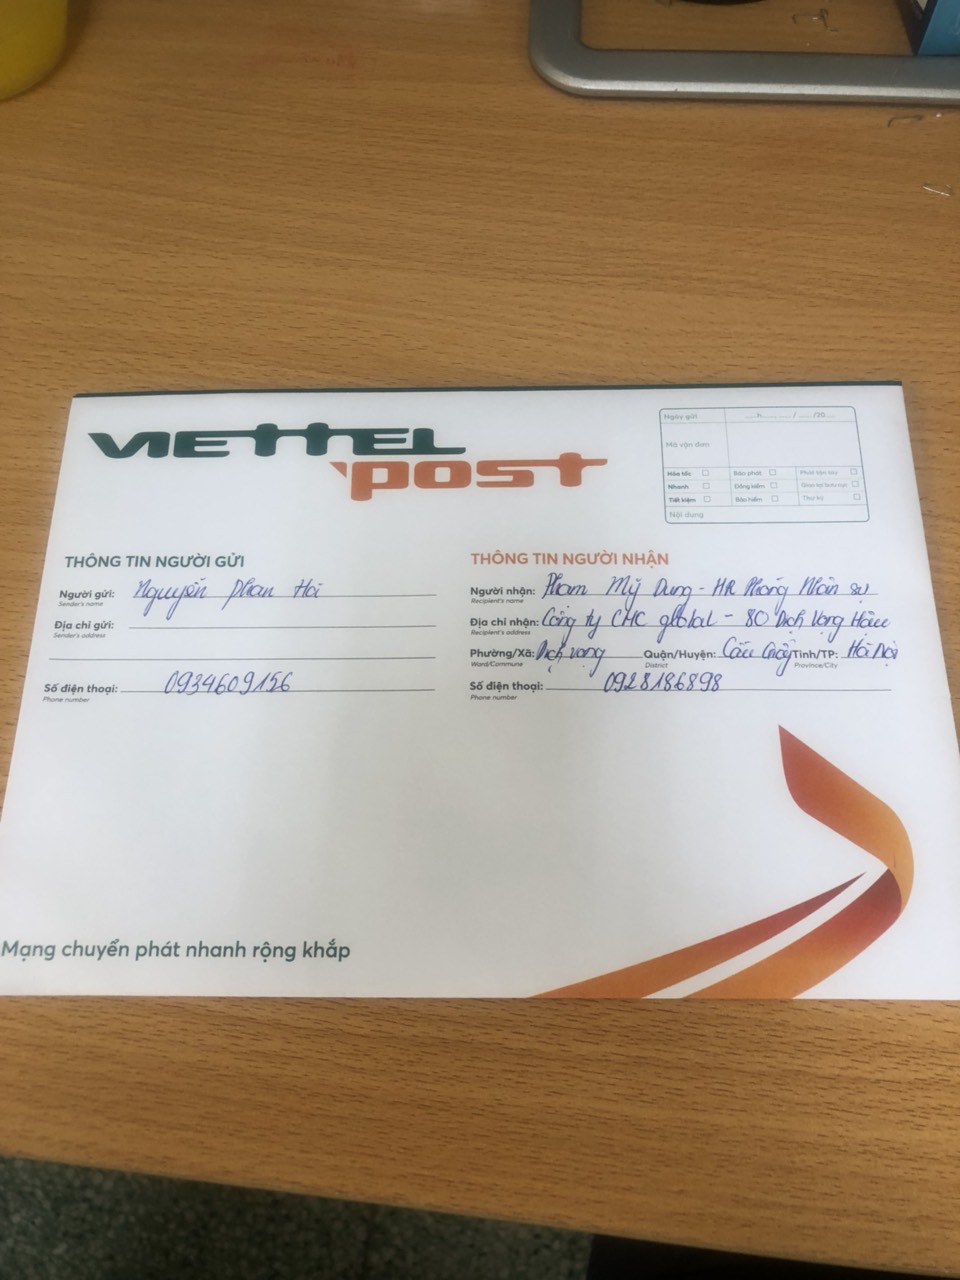 VIETTEL
post
Ngày gửi ......h...... ....../....../20......
Mã vận đơn
Hỏa tốc Báo phát Phát tận tay
Nhanh Đồng kiểm
Tiết kiệm Bảo hiểm Thư ký
Nội dung
THÔNG TIN NGƯỜI GỬI
Người gửi: Nguyễn Phan Hải
Sender's name
Địa chỉ gửi:
Sender's address
Số điện thoại: 0934609156
Phone number
THÔNG TIN NGƯỜI NHẬN
Người nhận: Phạm Mỹ Dung - HR Phòng Nhân sự
Recipient's name
Địa chỉ nhận: Công ty CMC global - 80 Dịch Vọng Hậu
Recipient's address
Phường/Xã: Dịch vọng Quận/Huyện: Cầu Giấy Tỉnh/TP: Hà Nội
Ward/Commune District Province/City
Số điện thoại: 0928186898
Phone number
Mạng chuyển phát nhanh rộng khắp